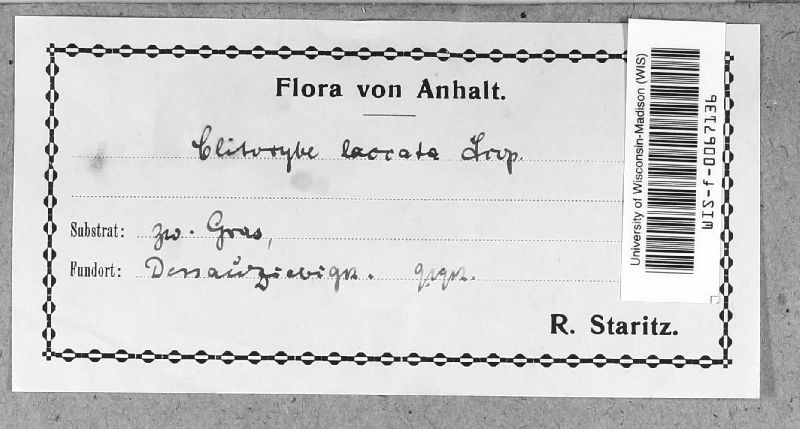 Flora von Anhalt.
Clitocybe laccata Scop.
Substrat: zw. Gras,
Fundort: Dessau
R. Staritz.
University of Wisconsin-Madison (WIS)
WIS-f-0067136